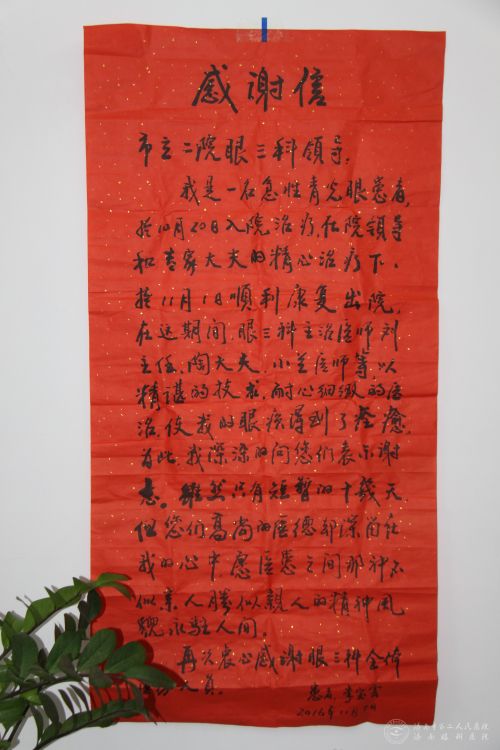 感谢信
市立二院眼三科领导:
我是一名急性青光眼患者,
於10月20日入院治疗,在院领导
和专家大夫的精心治疗下、
於11月1日顺利康复出院,
在这期间,眼三科主治医师刘
主任、陶大夫、小兰医师等,以
精谌的技术,耐心细缴的医
治,使我的眼疾得到了痊癒,
为此,我深深的向您们表示谢
意。虽然只有短暂的十几天
但您们高尚的医德却深留在
我的心中愿医患之间那种不
似亲人胜似親人的精神风
貌永驻人间。
再次衷心感谢眼三科全体
医务人员。
患者:李
2016年11月
济南市第二人民医院
济南眼科医院